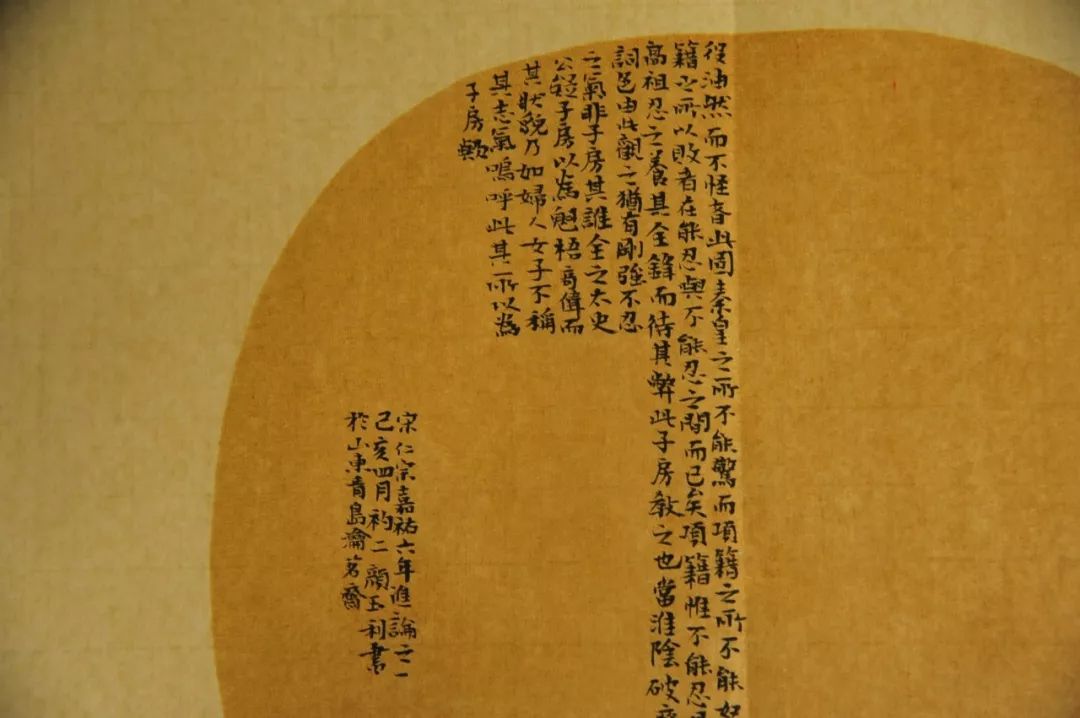 役油然而不怪者此固秦皇之所不能驚而項籍之所不能
籍之所以敗者在能忍與不能忍之間而已矣項籍惟不能忍
高祖忍之養其全鋒而待其弊此子房教之也當淮陰破
詞色由此觀之猶有剛強不忍
之氣非子房其誰全之太史
公疑子房以為魁梧奇偉而
其狀貌乃如婦人女子不稱
其志氣嗚呼此其所以為
子房歟
宋仁宗嘉祐六年進論之一
己亥四月初二顏玉利書
於山東青島瀹茗齋